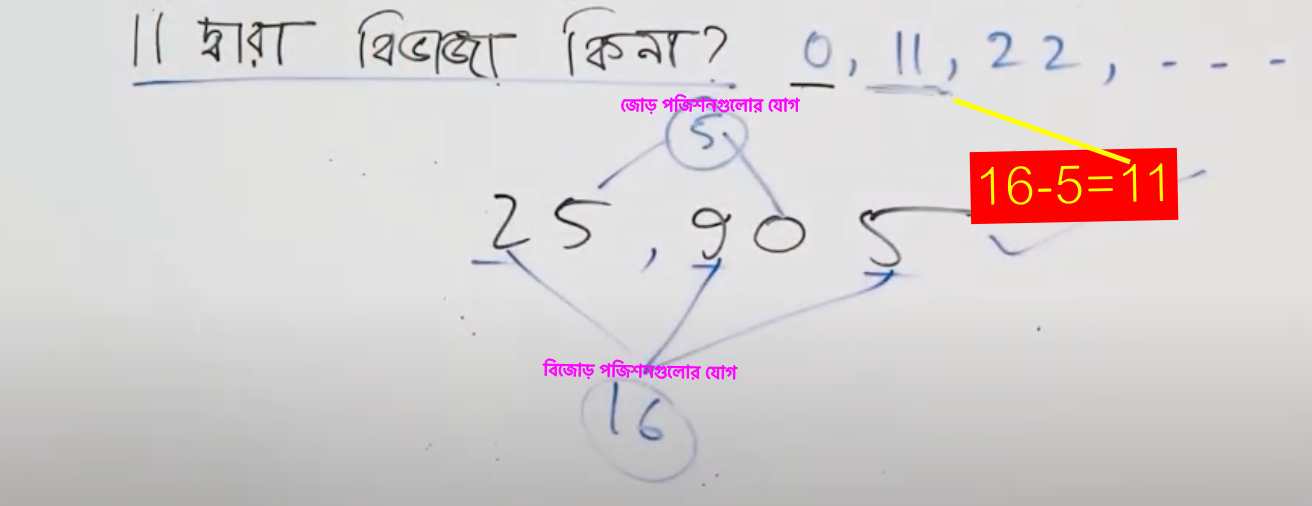 11 দ্বারা বিভাজ্য কিনা? 0, 11, 22, - - -
জোড় পজিশনগুলোর যোগ
5
16-5=11
25,905
বিজোড় পজিশনগুলোর যোগ
16